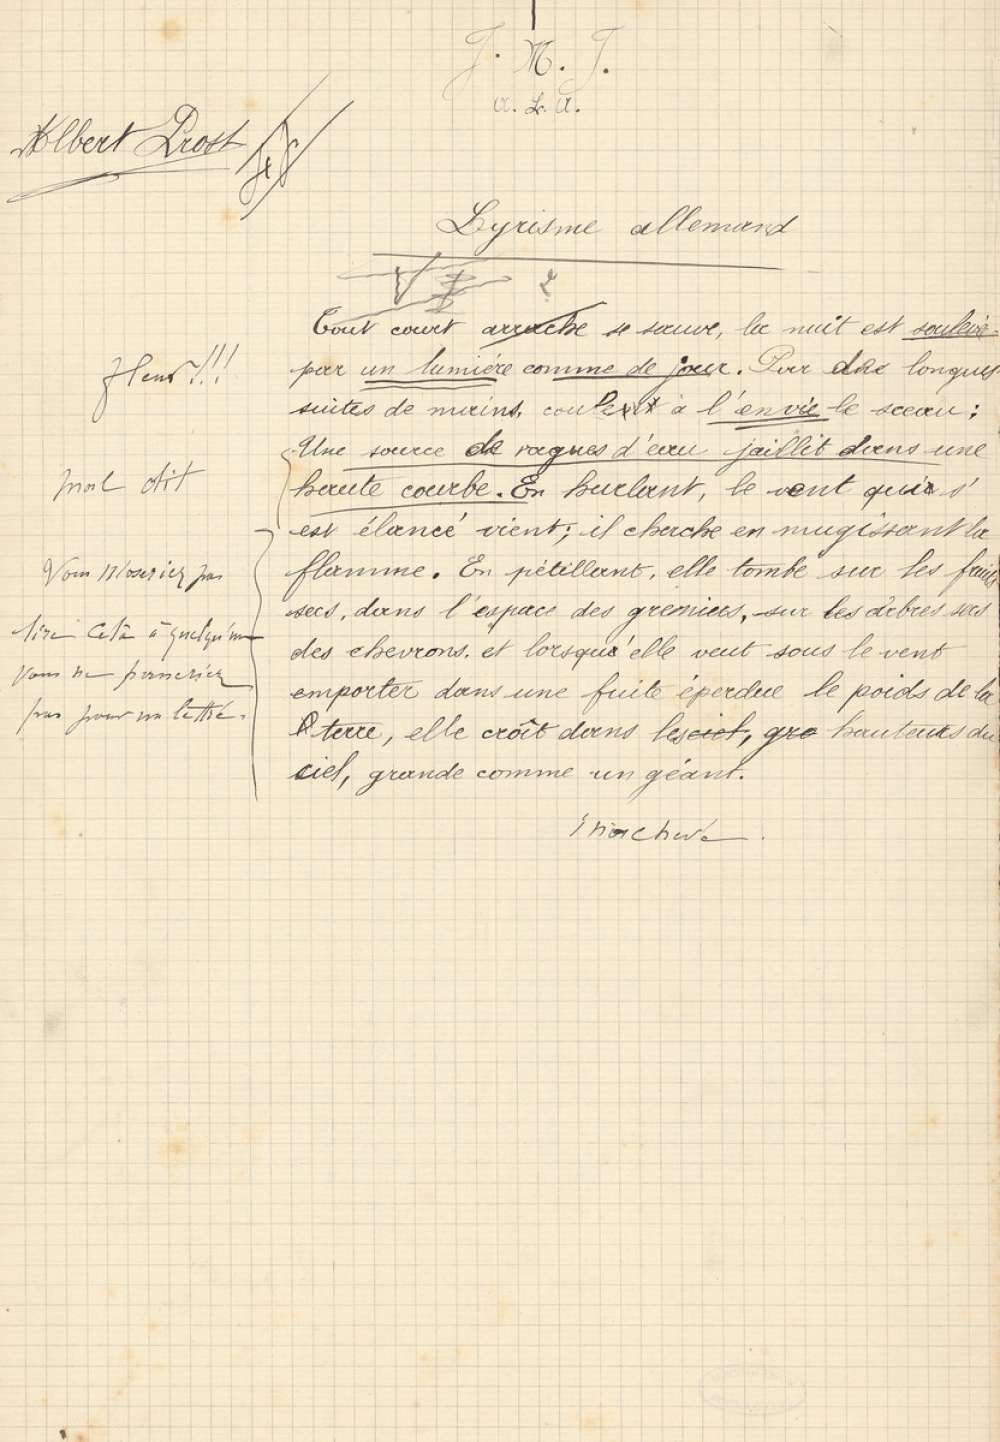 J. M. J.
a. L. a.
Albert Prost
Lyrisme allemand
Tout court arrache se sauve, la nuit est soulevé-
par un lumière comme de jour. Par des longues
suites de mains, coulent à l'envie le sceau;
Une source de vagues d'eau jaillit dans une
haute courbe. En hurlant, le vent qui s'
est élancé vient; il cherche en mugissant la
flamme. En pétillant, elle tombe sur les fruits
secs, dans l'espace des greniers, sur les arbres secs
des chevrons, et lorsqu'elle veut sous le vent
emporter dans une fuite éperdue le poids de la
terre, elle croît dans les ciel, gra hauteurs du
ciel, grande comme un géant.
inachevé.
!!!
mal dit
Vous n'oseriez pas
lire cela à quelqu'un
vous ne passeriez
pas pour un lettré.